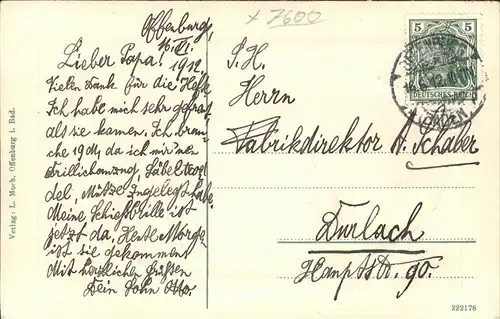 × 7600
Offenburg,
16. VI.
1912
Lieber Papa!
Vielen Dank für die Hefte.
Ich habe mich sehr gefreut
als sie kamen. Ich brau-
che 19 M, da ich mir nen
Drillichanzug, Säbeltrod-
del, Mütze
Meine Schießbrille ist
jetzt da, Heute Morgen
ist sie gekommen
Mit herzlichen Grüssen
Dein Sohn Otto.
S. H.
Herrn
Fabrikdirektor A. Schaler
Durlach
Hauptstr. 90.
5 5
DEUTSCHES REICH
(BADEN)
Verlag: L. Moch, Offenburg i. Bad.
222178